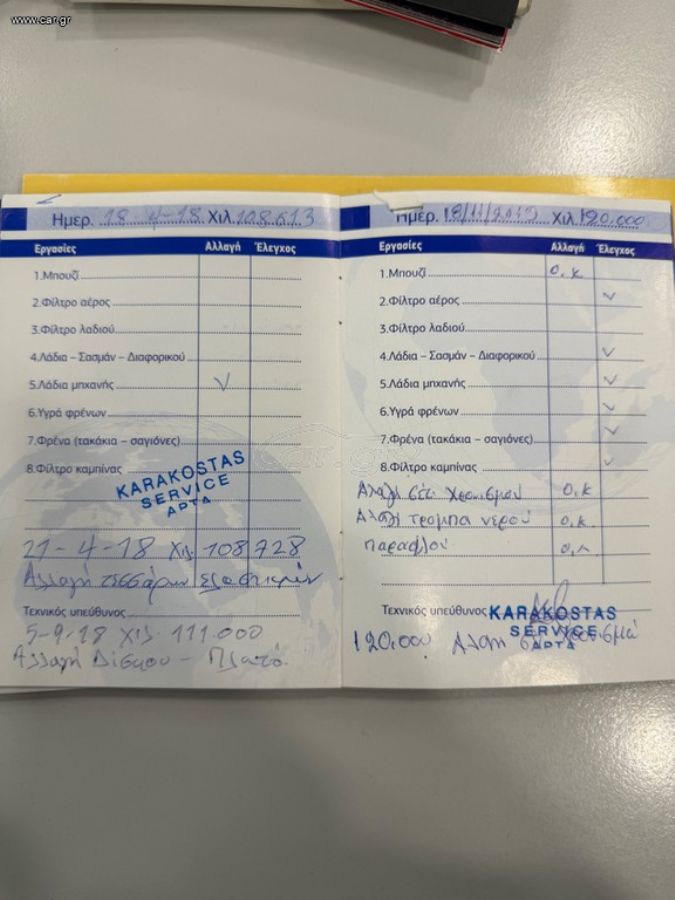 www.car.gr
Ημερ. 18-4-18 Χιλ. 108.613
Εργασίες Αλλαγή Έλεγχος
1.Μπουζί
2.Φίλτρο αέρος
3.Φίλτρο λαδιού
4.Λάδια – Σασμάν – Διαφορικού
5.Λάδια μηχανής
6.Υγρά φρένων
7.Φρένα (τακάκια – σαγιόνες)
8.Φίλτρο καμπίνας
KARAKOSTAS
SERVICE
ΑΡΤΑ
21-4-18 Χιλ. 108728
Αλλαγή τεσσάρων ελαστικών
Τεχνικός υπεύθυνος
5-9-18 Χιλ. 111.000
Αλλαγή Δίσκου - Πλατό.
Ημερ. 18/11/ Χιλ. 120.000
Εργασίες Αλλαγή Έλεγχος
1.Μπουζί Ο.Κ
2.Φίλτρο αέρος
3.Φίλτρο λαδιού
4.Λάδια – Σασμάν – Διαφορικού
5.Λάδια μηχανής
6.Υγρά φρένων
7.Φρένα (τακάκια – σαγιόνες)
8.Φίλτρο καμπίνας
Αλαγι σετ Χρονισμου Ο.Κ
Αλαγι τρομπα νερου Ο.Κ.
Παραφλου
Τεχνικός υπεύθυνος
KARAKOSTAS
SERVICE
ΑΡΤΑ
120.000 Αλαγη
car.gr